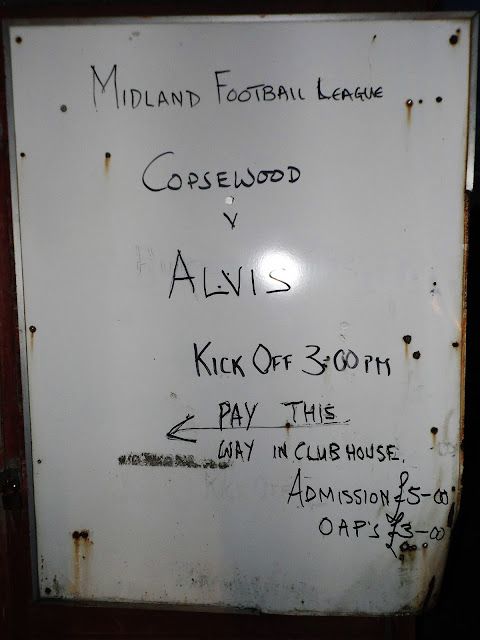 MIDLAND FOOTBALL LEAGUE
COPSEWOOD
V
ALVIS
KICK OFF 3:00 PM
PAY THIS
WAY IN CLUB HOUSE.
ADMISSION £5-00
OAP'S £3-00